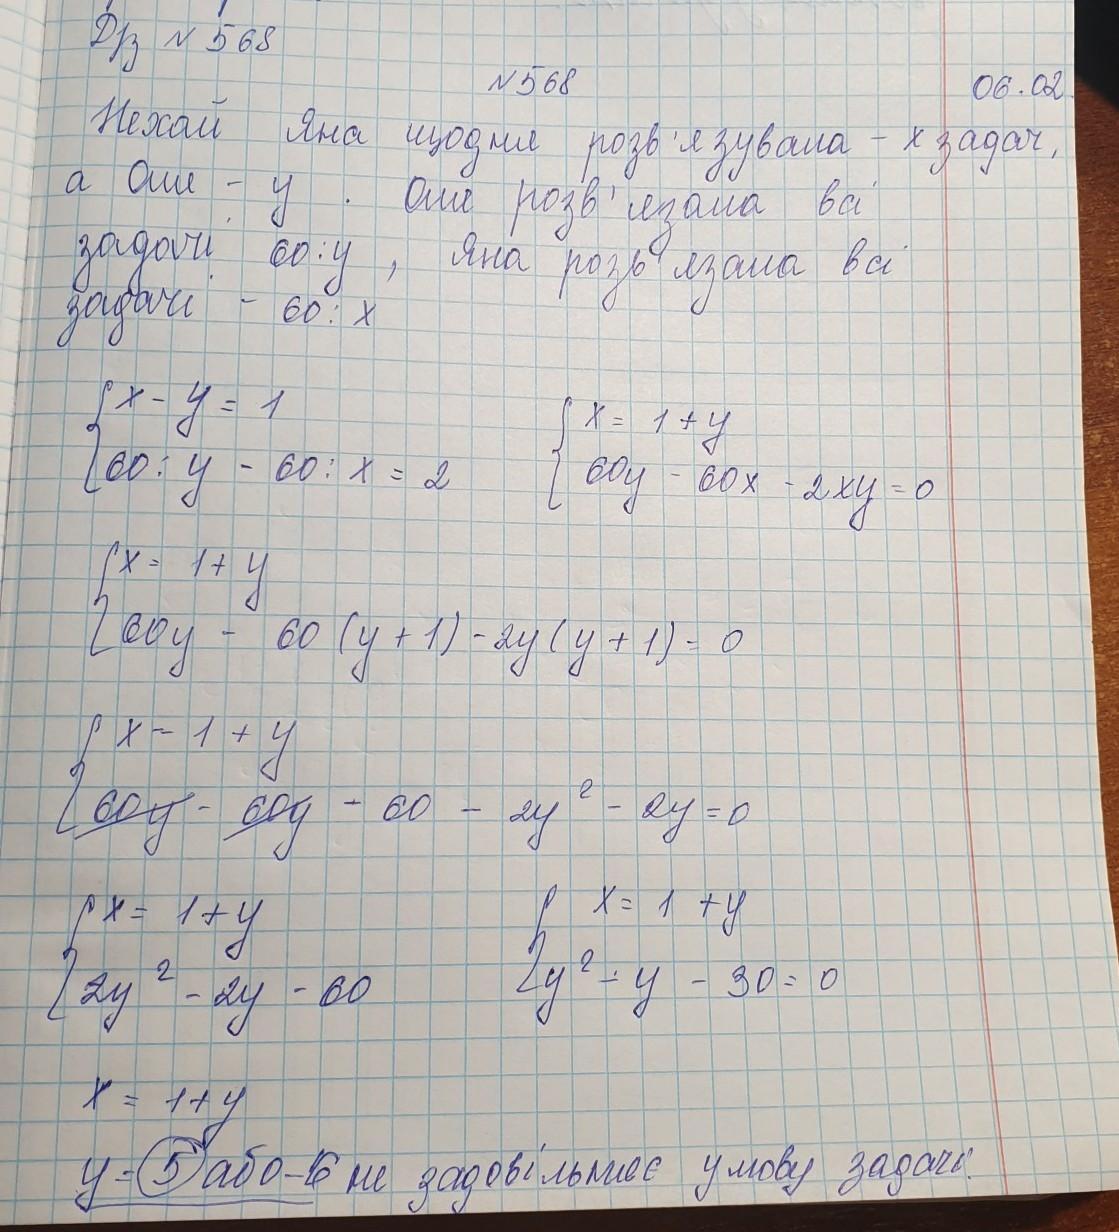 Д/з № 568
№568 06.02.
Нехай Яна щодня розв'язувала - x задач,
а Оля - y . Оля розв'язала всі
задачі 60:y , Яна розв'язала всі
задачі - 60:x
{x - y = 1 {x = 1 + y
{60:y - 60:x = 2 {60y - 60x - 2xy = 0
{x = 1 + y
{60y - 60(y + 1) - 2y(y + 1) = 0
{x - 1 + y
{60y - 60y - 60 - 2y² - 2y = 0
{x = 1 + y {x = 1 + y
{2y² - 2y - 60 {y² - y - 30 = 0
x = 1 + y
y = 5 або -6 не задовільняє умову задачі.